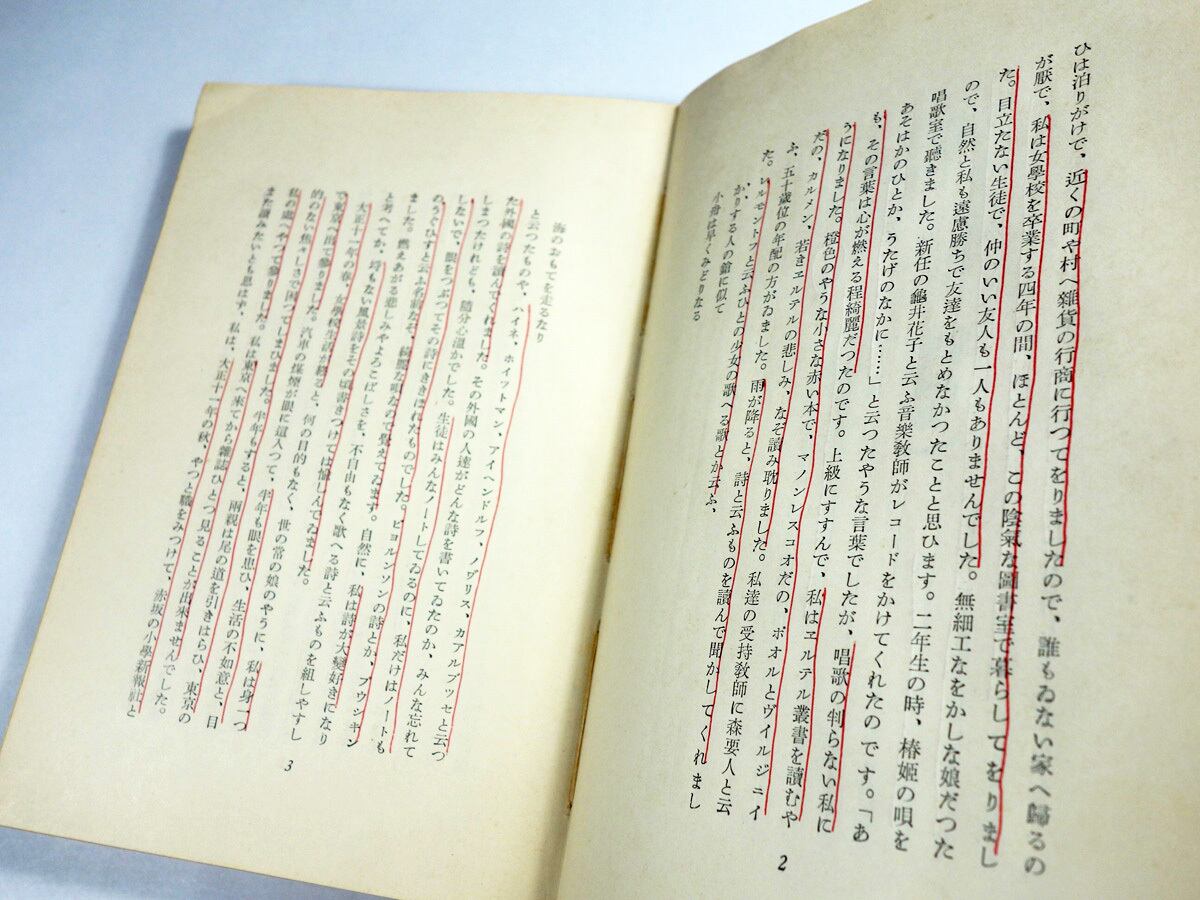 ひは泊りがけで、近くの町や村へ雜貨の行商に行つてをりましたので、誰もゐない家へ歸るの
が厭で、私は女學校を卒業する四年の間、ほとんど、この陰氣な圖書室で暮らしてをりまし
た。目立たない生徒で、仲のいい友人も一人もありませんでした。無細工なをかしな娘だつた
ので、自然と私も遠慮勝ちで友達をもとめなかつたことと思ひます。二年生の時、椿姫の唄を
唱歌室で聽きました。新任の龜井花子と云ふ音樂敎師がレコードをかけてくれたのです。「あ
あそはかのひとか、うたげのなかに……」と云つたやうな言葉でしたが、唱歌の判らない私に
も、その言葉は心が燃える程綺麗だつたのです。上級にすすんで、私はヱルテル叢書を讀むや
うになりました。橙色のやうな小さな赤い本で、マノンレスコオだの、ポオルとヴイルジニイ
だの、カルメン、若きヱルテルの悲しみ、なぞ讀み耽りました。私達の受持敎師に森要人と云
ふ、五十歳位の年配の方がゐました。雨が降ると、詩と云ふものを讀んで聞かしてくれまし
た。レルモントフと云ふひとの少女の歌へる歌とか云ふ、
かりする人の鎗に似て
小舟は早くみどりなる
2
海のおもてを走るなり
と云つたものや、ハイネ、ホイツトマン、アイヘンドルフ、ノヴリス、カアルブツセと云つ
た外國の詩を讀んでくれました。その外國の人達がどんな詩を書いてゐたのか、みんな忘れて
しまつたけれども、隨分心溫かでした。生徒はみんなノートしてゐるのに、私だけはノートも
しないで、眼をつぶつてその詩にききほれたものでした。ビヨルンソンの詩とか、プウシキン
のうぐひすと云ふ名前なぞ、綺麗な唄なので覺えてゐます。自然に、私は詩が大變好きになり
ました。燃えあがる悲しみやよろこばしさを、不自由もなく歌へる詩と云ふものを組しやすし
と考へてか、埓もない風景詩をその頃書きつけては愉しんでゐました。
大正十一年の春、女學校生活が終ると、何の目的もなく、世の常の娘のやうに、私は身一つ
で東京へ出て參りました。汽車の煤煙が眼に這入つて、半年も眼を患ひ、生活の不如意と、目
的のない焦々しさで困つてしまひました。半年もすると、兩親は尾の道を引きはらひ、東京の
私の處へやつて參りました。私は、東京へ來てから雜誌ひとつ見ることが出來ませんでした。
また讀みたいとも思はず、私は、大正十一年の秋、やつと職をみつけて、赤坂の小學新報社と
3